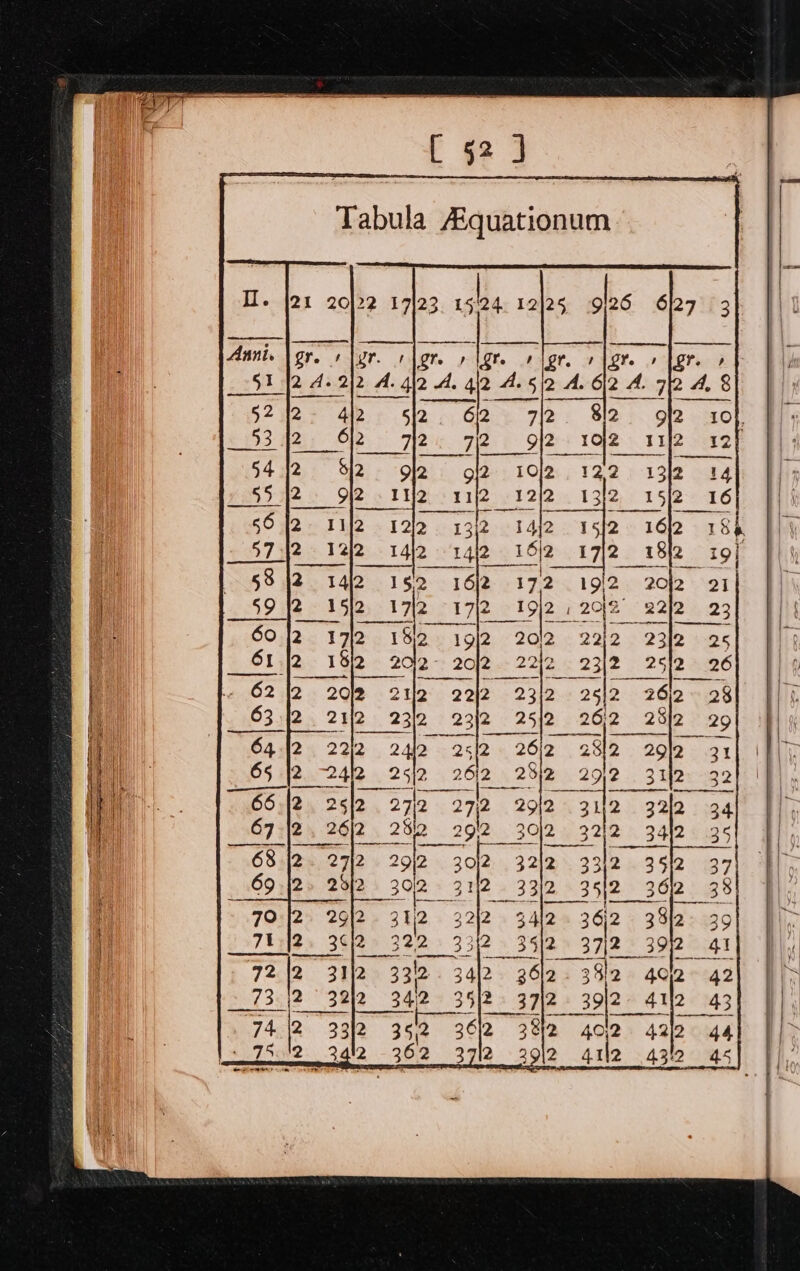 [ 52 ]
Tabula Æquationum
II. |21 20|22 17|23 15|24 12|25 9|26 6|27 3
Anni. |gr. ′|gr. ′|gr. ′|gr. ′|gr. ′|gr. ′|gr. ′
51 |2 A. 2|2 A. 4|2 A. 4|2 A. 5|2 A. 6|2 A. 7|2 A. 8
52 |2 4|2 5|2 6|2 7|2 8|2 9|2 10
53 |2 6|2 7|2 7|2 9|2 10|2 11|2 12
54 |2 8|2 9|2 9|2 10|2 12|2 13|2 14
55 |2 9|2 11|2 11|2 12|2 13|2 15|2 16
56 |2 11|2 12|2 13|2 14|2 15|2 16|2 18
57 |2 12|2 14|2 14|2 16|2 17|2 18|2 19
58 |2 14|2 15|2 16|2 17|2 19|2 20|2 21
59 |2 15|2 17|2 17|2 19|2 20|2 22|2 23
60 |2 17|2 18|2 19|2 20|2 22|2 23|2 25
61 |2 18|2 20|2 20|2 22|2 23|2 25|2 26
62 |2 20|2 21|2 22|2 23|2 25|2 26|2 28
63 |2 21|2 23|2 23|2 25|2 26|2 28|2 29
64 |2 22|2 24|2 25|2 26|2 28|2 29|2 31
65 |2 24|2 25|2 26|2 28|2 29|2 31|2 32
66 |2 25|2 27|2 27|2 29|2 31|2 32|2 34
67 |2 26|2 28|2 29|2 30|2 32|2 34|2 35
68 |2 27|2 29|2 30|2 32|2 33|2 35|2 37
69 |2 28|2 30|2 31|2 33|2 35|2 36|2 38
70 |2 29|2 31|2 32|2 34|2 36|2 38|2 39
71 |2 30|2 32|2 33|2 35|2 37|2 39|2 41
72 |2 31|2 33|2 34|2 36|2 38|2 40|2 42
73 |2 32|2 34|2 35|2 37|2 39|2 41|2 43
74 |2 33|2 35|2 36|2 38|2 40|2 42|2 44
75 |2 34|2 36|2 37|2 39|2 41|2 43|2 45